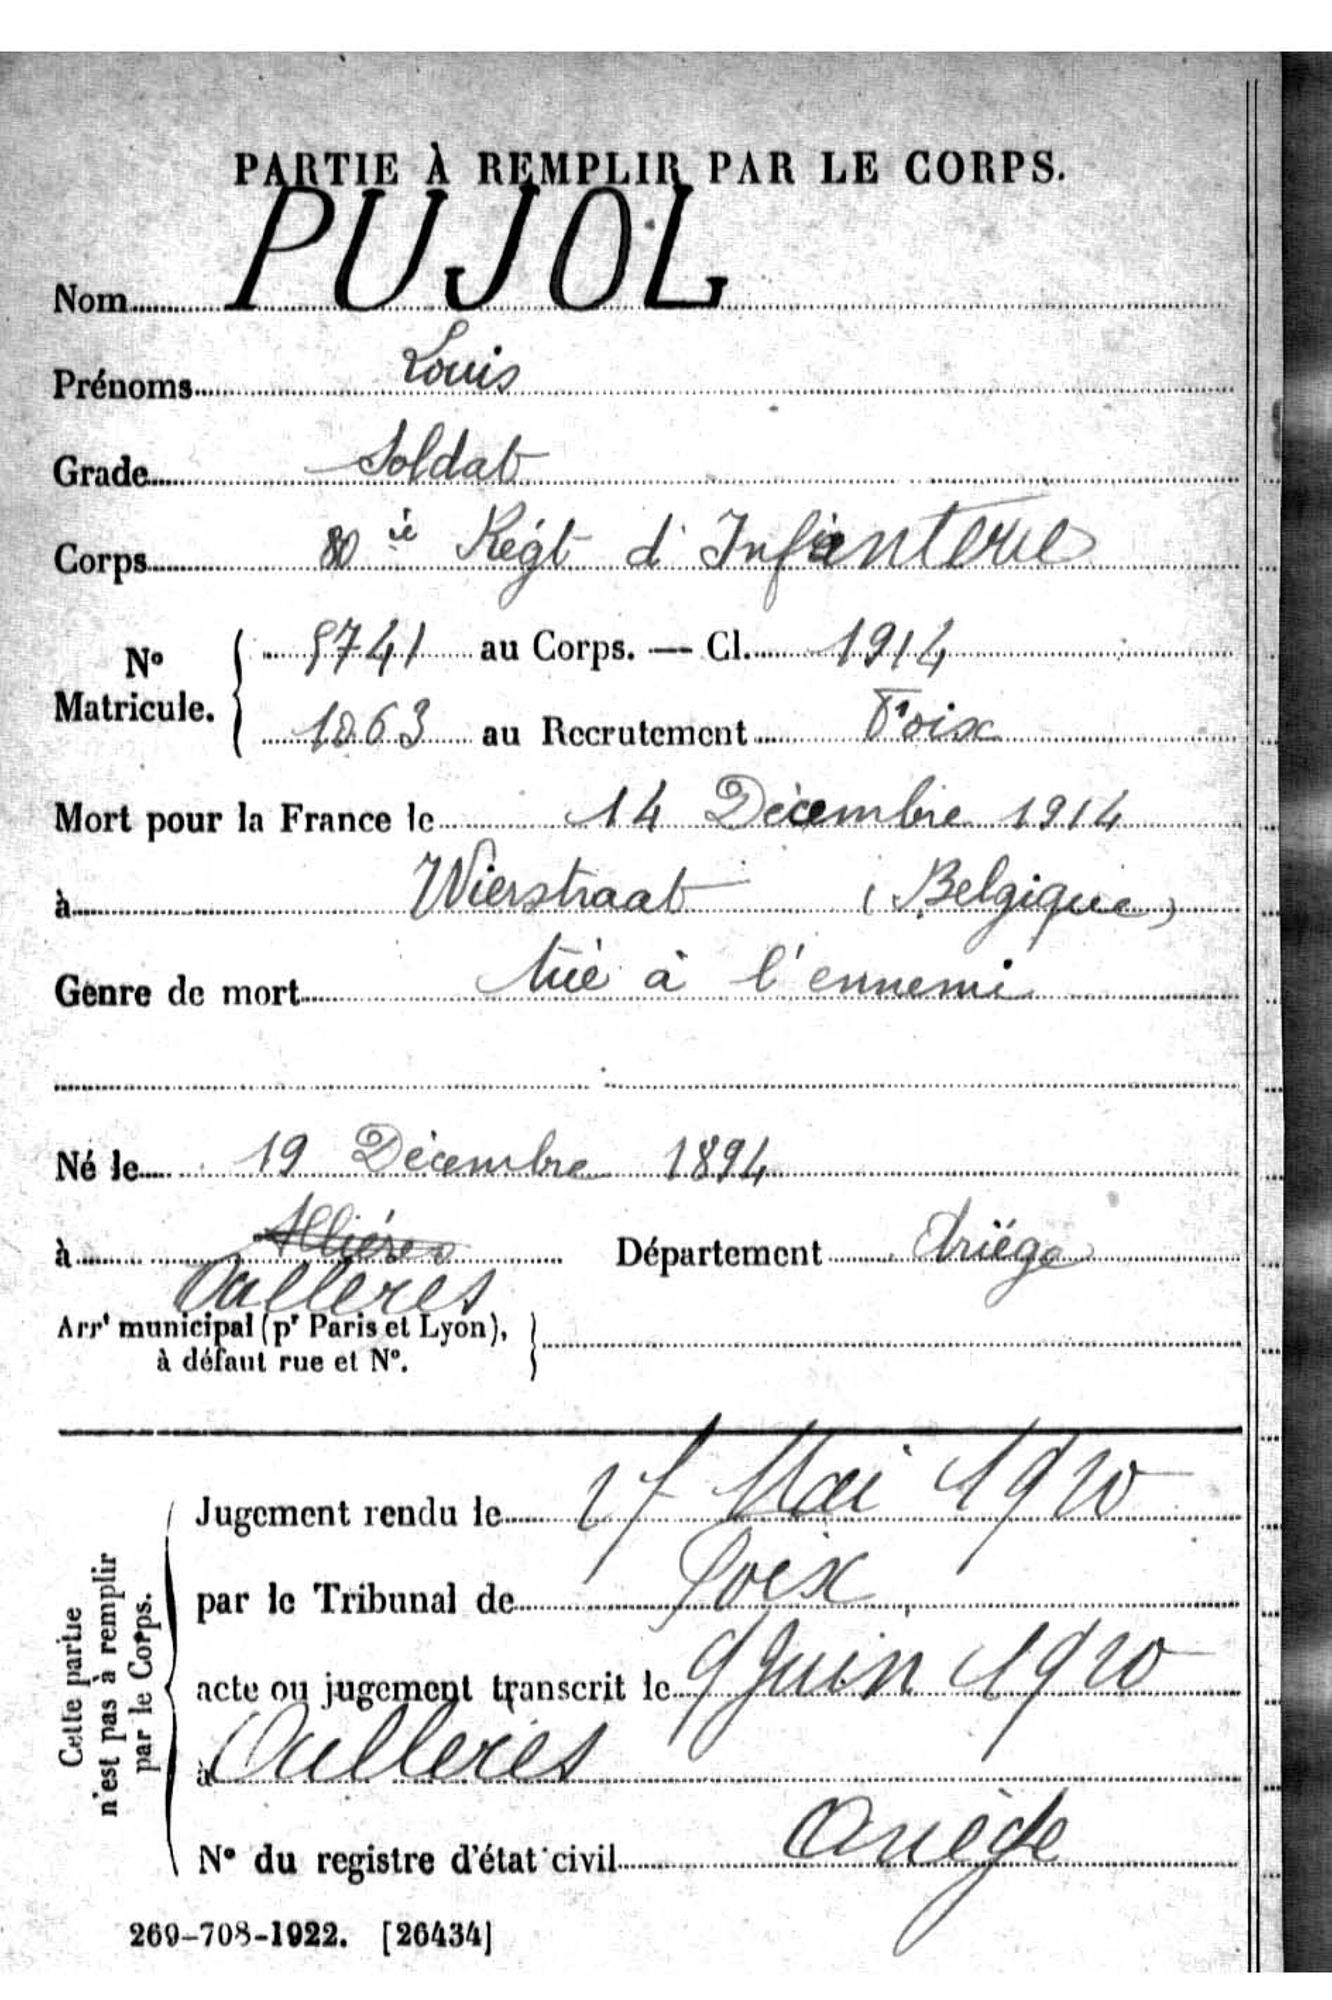 PARTIE À REMPLIR PAR LE CORPS.
Nom PUJOL
Prénoms Louis
Grade Soldat
Corps 80 è Régt d'Infanterie
N° Matricule. { 5741 au Corps. — Cl. 1914
1063 au Recrutement Foix
Mort pour la France le 14 Décembre 1914
à Wierstraat (Belgique)
Genre de mort tué à l'ennemi
Né le 19 Décembre 1894
à Allières Département Ariège
Arrt municipal (pr Paris et Lyon), }
à défaut rue et N°.
Cette partie n'est pas à remplir par le Corps.
Jugement rendu le 17 Mai 1920
par le Tribunal de Foix
acte ou jugement transcrit le 9 Juin 1920
à
N° du registre d'état civil Ariège
269-708-1922. [26434]